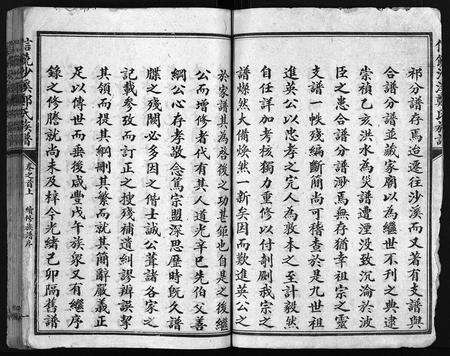 祁分譜存焉迨遷往沙溪而又著有支譜與
合譜分譜並藏家廟以為繼世不刊之典逮
崇禎乙亥洪水為災譜遭湮没致沉淪於波
臣之患合譜分譜渺焉無存猶幸祖宗之靈
支譜一帙殘編斷簡尚可稽查於是九世祖
進英公以忠孝之完人為敦本之至計毅然
自任詳加考核獨力重修以付剞劂我宗之
譜燦然大備煥然一新矣因而散進英公之
於家譜其為啓後之功甚鉅也自是之後繼
公而增修者代有其人道光辛巳先伯父善
綱公心存孝敬念篤宗盟深思歷時既久譜
牒之殘闕必多因之偕士誠公蒐諸各家之
記載參攷而訂正之搜殘補遺糾謬辨誤挈
其領而提其綱刪其繁而就其簡辭嚴義正
以為傳世而垂後咸豐戊午族衆又有繼序
錄之修謄就尚未及梓今光緒己卯隔舊譜
卷之首上
信饒沙溪鄭氏族譜